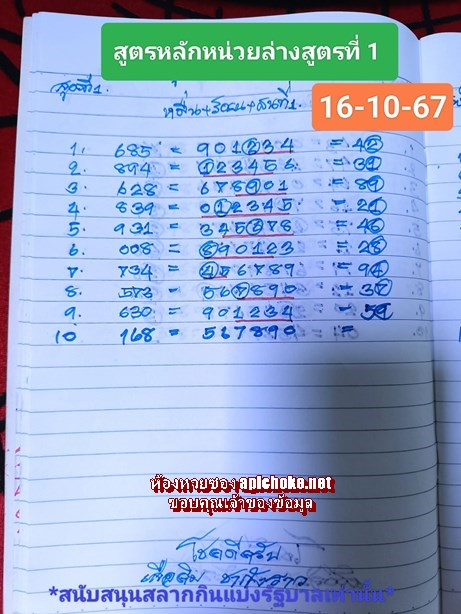 สูตรหลักหน่วยล่างสูตรที่ 1
สูตรที่1.
16-10-67
1. 685 = 901234 = 42
2. 894 = 123456 = 31
3. 628 = 678901 = 89
4. 839 = 012345 = 21
5. 931 = 345678 = 46
6. 008 = 890123 = 28
7. 734 = 456789 = 94
8. 573 = 567890 = 37
9. 630 = 901234 = 59
10 168 = 567890 =
ห้องหวยซอง apichoke.net
ขอบคุณเจ้าของข้อมูล
โชคดีครับ
*สนับสนุนสลากกินแบ่งรัฐบาลเท่านั้น*